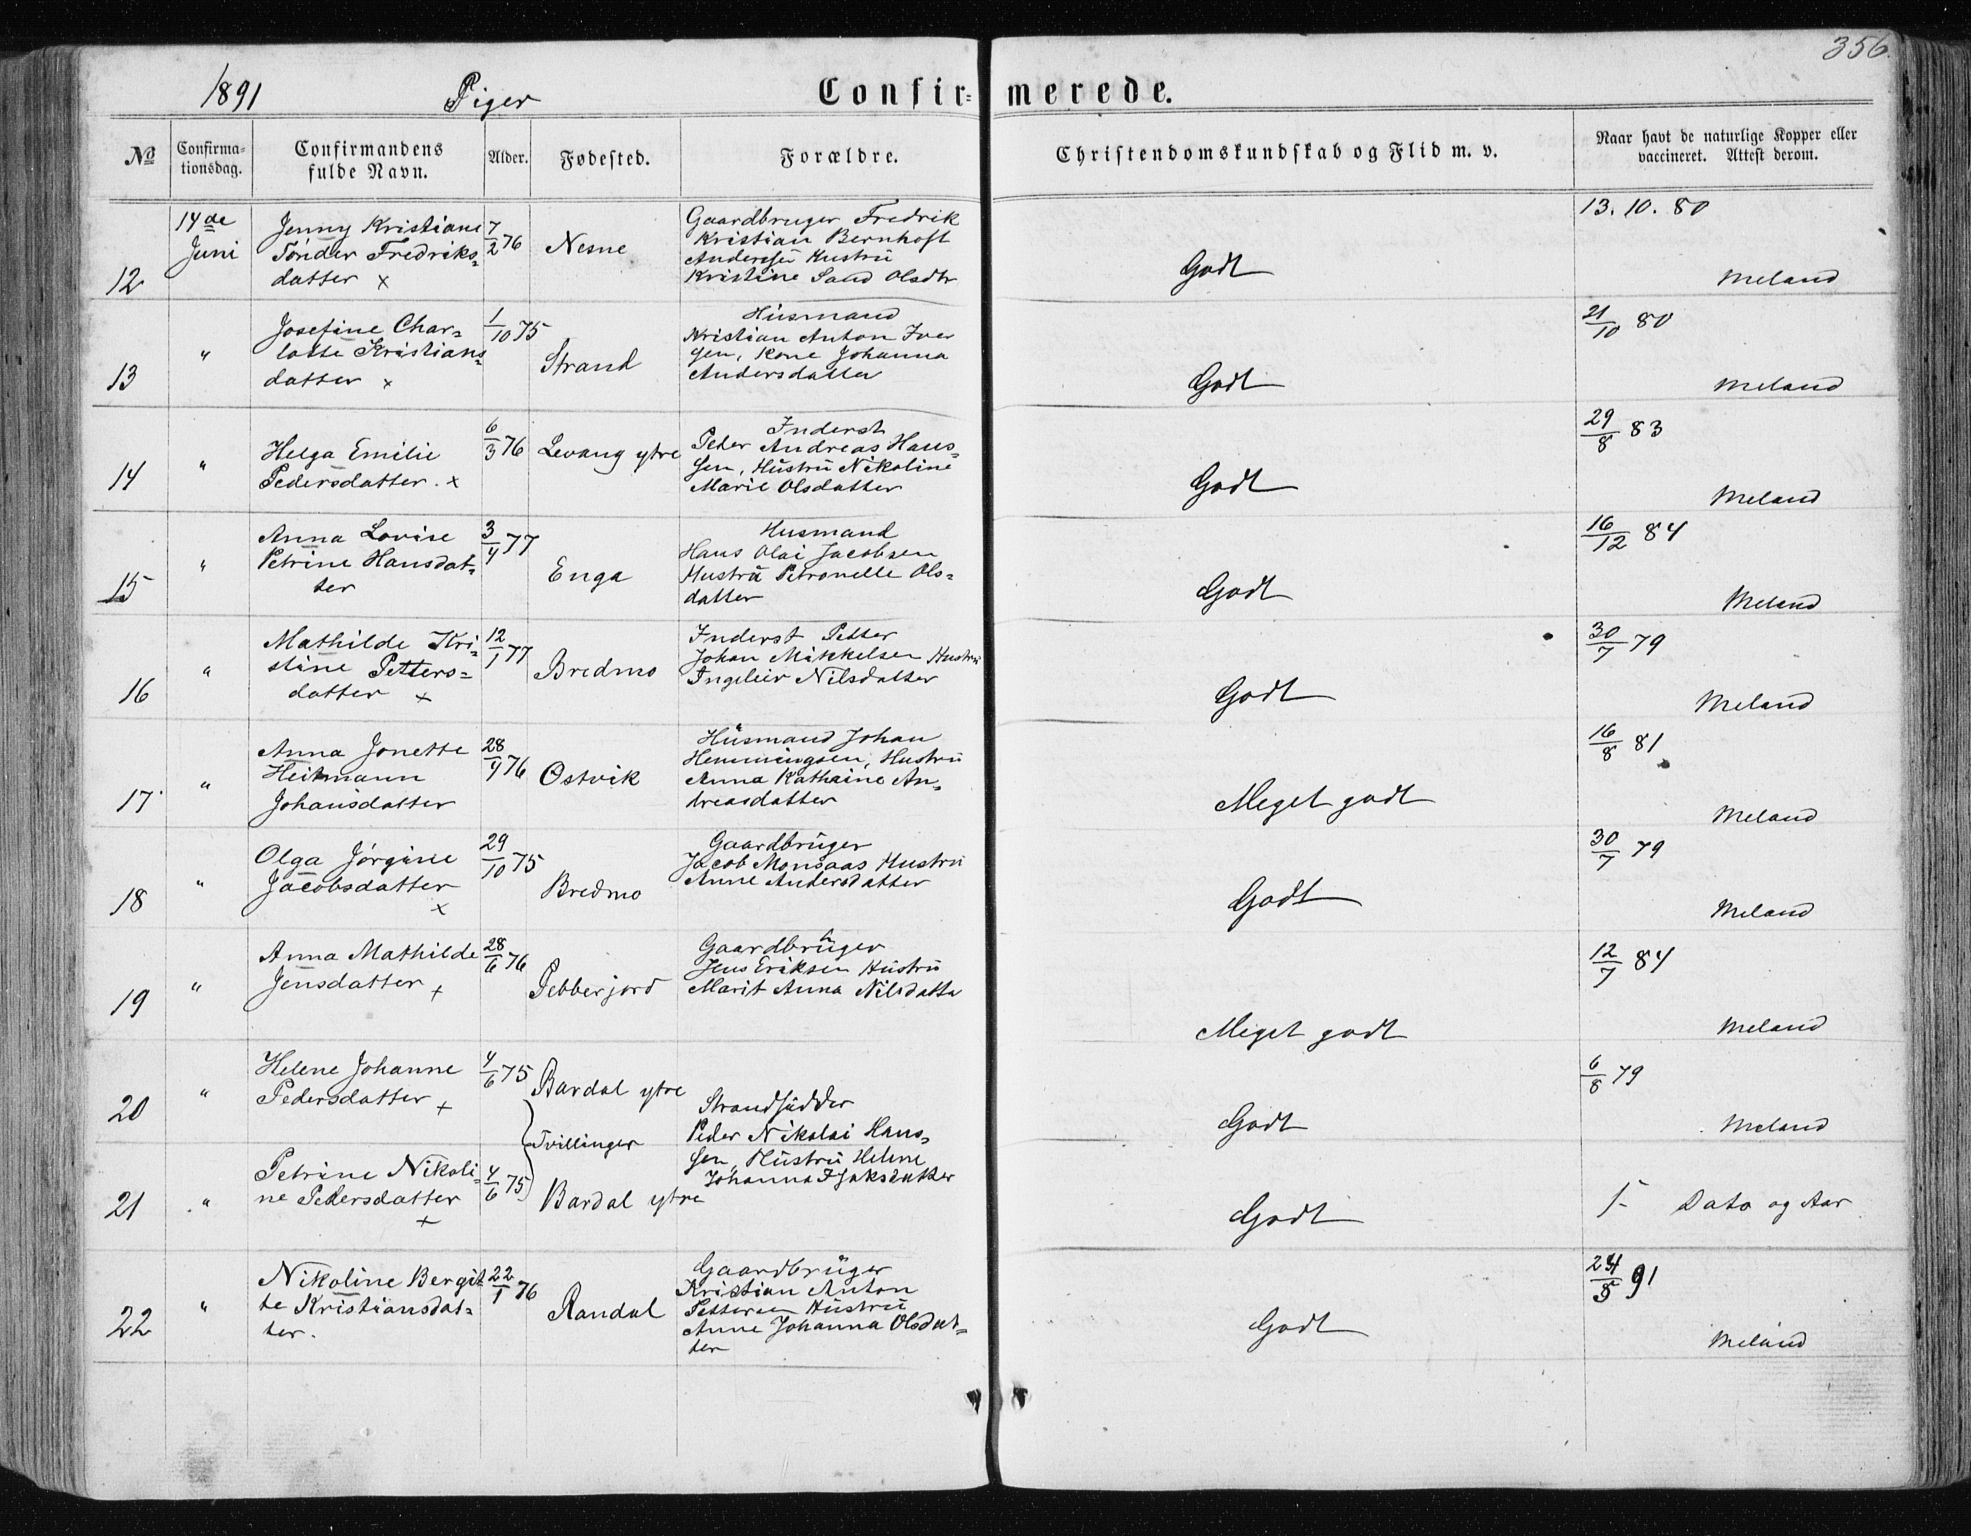 356.
1891 Piger Confirmerede.
No Confirmationsdag. Confirmandens fulde Navn. Alder. Fødested. Forældre. Christendomskundskab og Flid m. v. Naar havt de naturlige Kopper eller vaccineret. Attest derom.
12 14de Juni
Jenny Kristiane
Tønder Fredriks-
datter x
7/2 76 Nesne
Gaardbruger Fredrik
Kristian Bernhoft
Andersen Hustru
Kristine Sand Olsdtr
Godt
13. 10. 80
Meland
13 "
Josefine Char-
lotte Kristians-
datter x
1/10 75 Strand
Husmand
Kristian Anton Iver
sen, Kone Johanna
Andersdatter
Godt
21/10 80
Meland
14 "
Helga Emilie
Pedersdatter. x
6/3 76 Levang ytre
Inderst
Peter Andreas Hans-
sen, Hustru Nikoline
Marie Olsdatter
Godt
29/8 83
Meland
15 "
Anna Lovise
Petrine Hansdat-
ter
3/4 77 Enga
Husmand
Hans Olai Jacobsen
Hustru Petronelle Ols-
datter
Godt
16/12 84
Meland
16 "
Mathilde Kri-
stine Petters-
datter x
12/1 77 Bredmo
Inderst Petter
Johan Mikkelsen Hustru
Ingeleiv Nilsdatter
Godt
30/7 79
Meland
17 "
Anna Jonette
Heitmann
Johansdatter
28/4 76 Østvik
Husmand Johan
Hemmingsen, Hustru
Anna Kathrine An-
dreasdatter
Meget godt
16/8 81
Meland
18 "
Olga Jørgine
Jacobsdatter
x
29/10 75 Bredmo
Gaardbruger
Jacob Monsaas Hustru
Anne Andersdatter
Godt
30/7 79
Meland
19 "
Anna Mathilde
Jensdatter x
28/6 76 Pebberjord
Gaardbruger
Jens Eriksen Hustru
Marit Anna Nilsdatter
Meget godt
12/7 84
Meland
20 "
Helene Johanne
Pedersdatter x
4/6 75 Bardal ytre
Tvillinger
Strandsidder
Peder Nikolai Hans-
sen, Hustru Helene
Johanna Isaksdatter
Godt
6/8 79
Meland
21 "
Petrine Nikoli-
ne Pedersdatter
x
4/6 75 Bardal ytre
Godt
Dato og Aar
22 "
Nikoline Bergit
te Kristiansdat-
ter.
22/1 76 Randal
Gaardbruger
Kristian Anton
Pettersen Hustru
Anne Johanna Olsdat-
ter
Godt
24/5 91
Meland